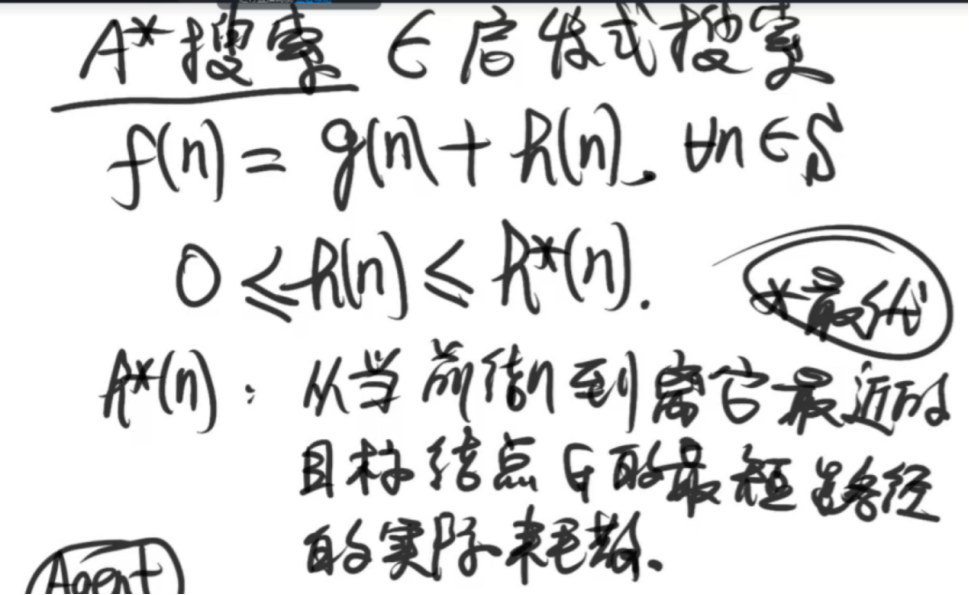 A*搜索 ∈ 启发式搜索
f(n) = g(n) + h(n), ∀n∈S
0 ≤ h(n) ≤ h*(n).
*最优
h*(n): 从当前结n到离它最近的
目标结点G的最短路径
的实际耗散.
Agent